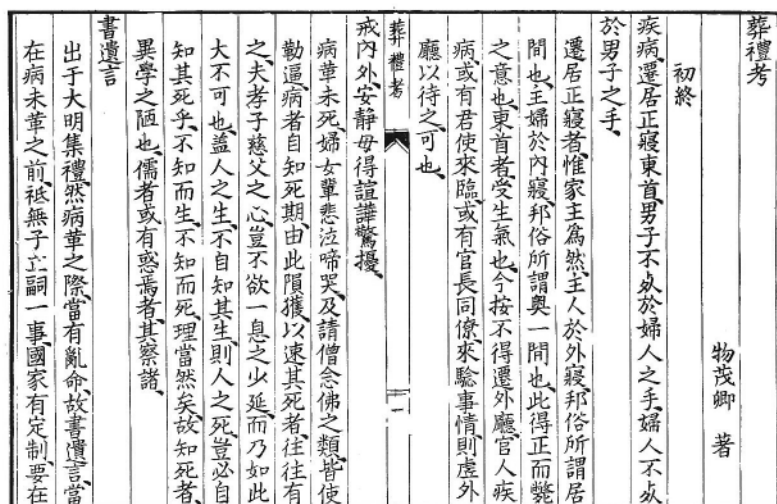 葬禮考
物茂卿 著
初終
疾病、遷居正寢東首、男子不死於婦人之手、婦人不死
於男子之手、
遷居正寢者、惟家主為然、主人於外寢、邦俗所謂居
間也、主婦於內寢、邦俗所謂奧一間也、此得正而斃
之意也、東首者、受生氣也、今按不得遷外廳、官人疾
病、或有君使來臨、或有官長同僚來驗事情、則虛外
廳以待之可也、
葬禮考
一
戒內外安靜毋得諠譁驚擾、
病革未死、婦女輩悲泣啼哭、及請僧念佛之類、皆使
勒逼病者自知死期、由此隕獲以速其死者、往往有
之、夫孝子慈父之心、豈不欲一息之少延、而乃如此
大不可也、蓋人之生、不自知其生、則人之死、豈必自
知其死乎、不知而生、不知而死、理當然矣、故知死者、
異學之陋也、儒者或有惑焉者、其察諸、
書遺言
出于大明集禮、然病革之際、當有亂命、故書遺言、當
在病未革之前、祗無子立嗣一事、國家有定制、要在